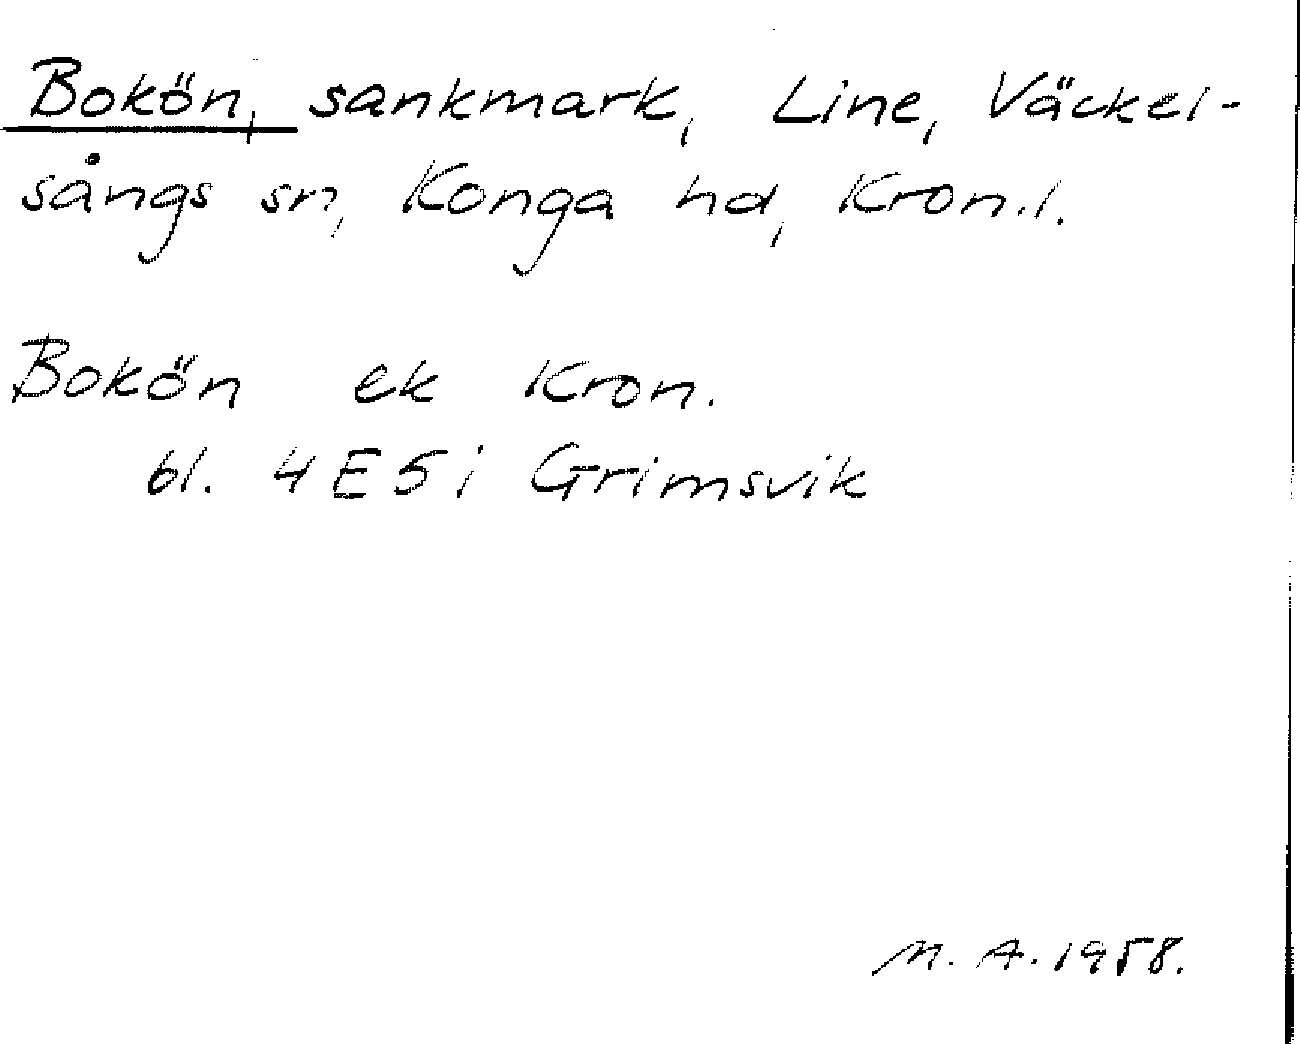 Bokön, sankmark, Line, Väckel-
sångs sn, Konga hd, Kron.l.
Bokön ek Kron.
bl. 4E5i Grimsvik
M. A. 1958.